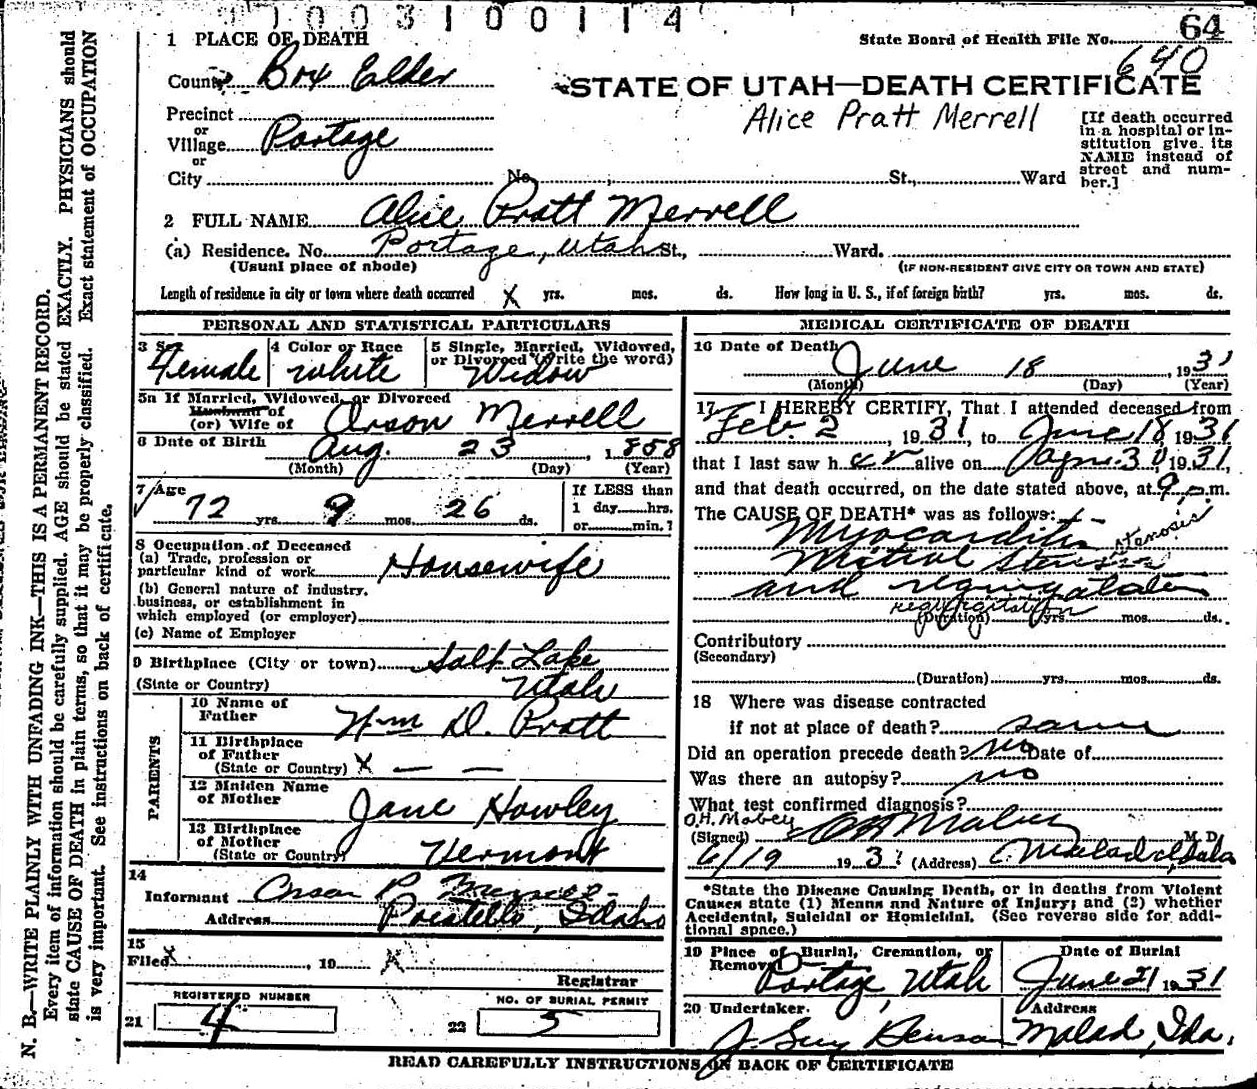 1003100114
64
1 PLACE OF DEATH
State Board of Health File No. 640
County Box Elder
STATE OF UTAH—DEATH CERTIFICATE
Alice Pratt Merrell
Precinct
or
Village Portage
or
City No. St., Ward
[If death occurred
in a hospital or in-
stitution give its
NAME instead of
street and num-
ber.]
2 FULL NAME Alice Pratt Merrell
(a) Residence. No. Portage, Utah St., Ward.
(Usual place of abode)
(IF NON-RESIDENT GIVE CITY OR TOWN AND STATE)
Length of residence in city or town where death occurred X yrs. mos. ds. How long in U. S., if of foreign birth? yrs. mos. ds.
PERSONAL AND STATISTICAL PARTICULARS
3 Sex
Female
4 Color or Race
White
5 Single, Married, Widowed,
or Divorced (Write the word)
Widow
5a If Married, Widowed, or Divorced
Husband of
(or) Wife of Orson Merrell
6 Date of Birth Aug. 23, 1858
(Month) (Day) (Year)
7 Age
72 yrs. 9 mos. 26 ds.
If LESS than
1 day hrs.
or min.?
8 Occupation of Deceased
(a) Trade, profession or
particular kind of work Housewife
(b) General nature of industry,
business, or establishment in
which employed (or employer)
(c) Name of Employer
9 Birthplace (City or town) Salt Lake
(State or Country) Utah
PARENTS
10 Name of
Father Wm D. Pratt
11 Birthplace
of Father
(State or Country) X — —
12 Maiden Name
of Mother Jane Howley
13 Birthplace
of Mother
(State or Country) Vermont
14
Informant Orson P.
Address Pocatello, Idaho
15
Filed X, 19 X
Registrar
REGISTERED NUMBER
21 4
NO. OF BURIAL PERMIT
22 5
MEDICAL CERTIFICATE OF DEATH
16 Date of Death June 18, 1931
(Month) (Day) (Year)
17 I HEREBY CERTIFY, That I attended deceased from
Feb. 2, 1931, to June 18 1931
that I last saw her alive on 1931,
and that death occurred, on the date stated above, at 9 p.m.
The CAUSE OF DEATH* was as follows:
Myocarditis
Mitral Stenosis stenosis
and regurgitation
regurgitation
(Duration) yrs. mos. ds.
Contributory
(Secondary)
(Duration) yrs. mos. ds.
18 Where was disease contracted
if not at place of death? same
Did an operation precede death? no Date of
Was there an autopsy? no
What test confirmed diagnosis?
O.H. Mabey
(Signed) O H Mabey M. D.
6/19 1931 (Address) Malad, Idaho
*State the Disease Causing Death, or in deaths from Violent
Causes state (1) Means and Nature of Injury; and (2) whether
Accidental, Suicidal or Homicidal. (See reverse side for addi-
tional space.)
19 Place of Burial, Cremation, or
Removal
Portage, Utah
Date of Burial
June 21 1931
20 Undertaker.
J. Guy Benson
Address
Malad, Ida.
READ CAREFULLY INSTRUCTIONS ON BACK OF CERTIFICATE
N. B.—WRITE PLAINLY WITH UNFADING INK—THIS IS A PERMANENT RECORD.
Every item of information should be carefully supplied. AGE should be stated EXACTLY. PHYSICIANS should
state CAUSE OF DEATH in plain terms, so that it may be properly classified. Exact statement of OCCUPATION
is very important. See instructions on back of certificate.